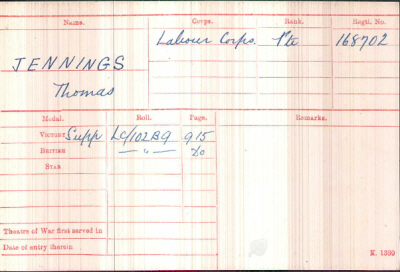 Name. Corps. Rank. Regtl. No.
JENNINGS Labour Corps. Pte 168702
Thomas
Medal. Roll. Page. Remarks.
VICTORY Supp LC/102B9 915
BRITISH — " — Do
STAR
Theatre of War first served in
Date of entry therein
K. 1380